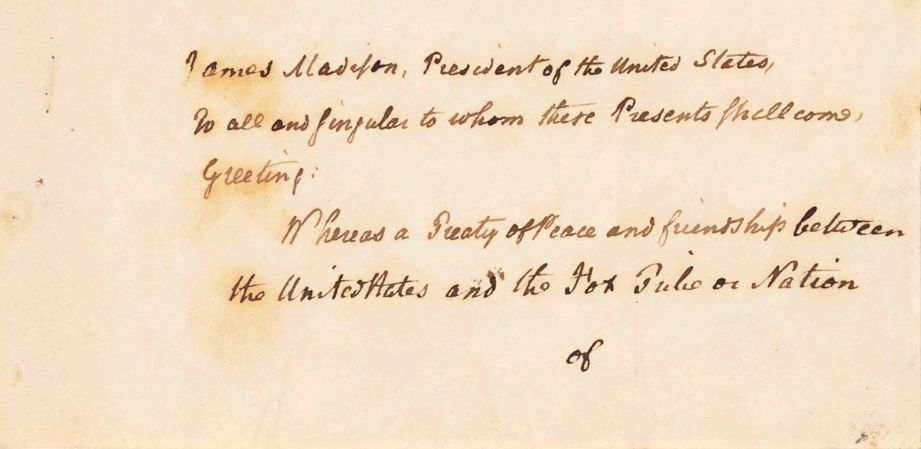 James Madison, President of the United States,
To all and singular to whom these Presents shall come,
Greeting:
Whereas a Treaty of Peace and friendship between
the United States and the Fox Tribe or Nation
of